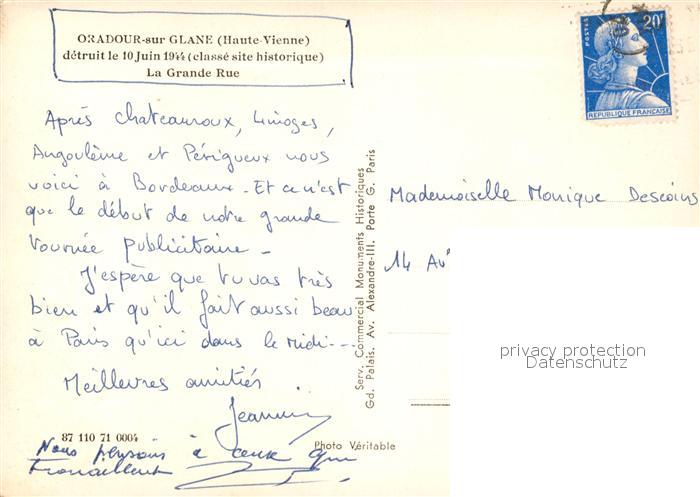 ORADOUR-sur GLANE (Haute-Vienne)
détruit le 10 Juin 1944 (classé site historique)
La Grande Rue
Après Chateauroux, Limoges,
Angoulème et Périgueux nous
voici à Bordeaux - Et ce n'est
que le début de notre grande
tournée publicitaire -
J'espère que tu vas très
bien et qu'il fait aussi beau
à Paris qu'ici dans le Midi ---
Meilleures amitiés.
87 110 71 0004
Nous pensons à ceux qui
travaillent
Photo Véritable
Serv. Commercial Monuments Historiques
Gd. Palais. Av. Alexandre-III. Porte G. Paris
POSTES
20F
REPUBLIQUE FRANÇAISE
Mademoiselle Monique Descoins
14 Av
privacy protection
Datenschutz